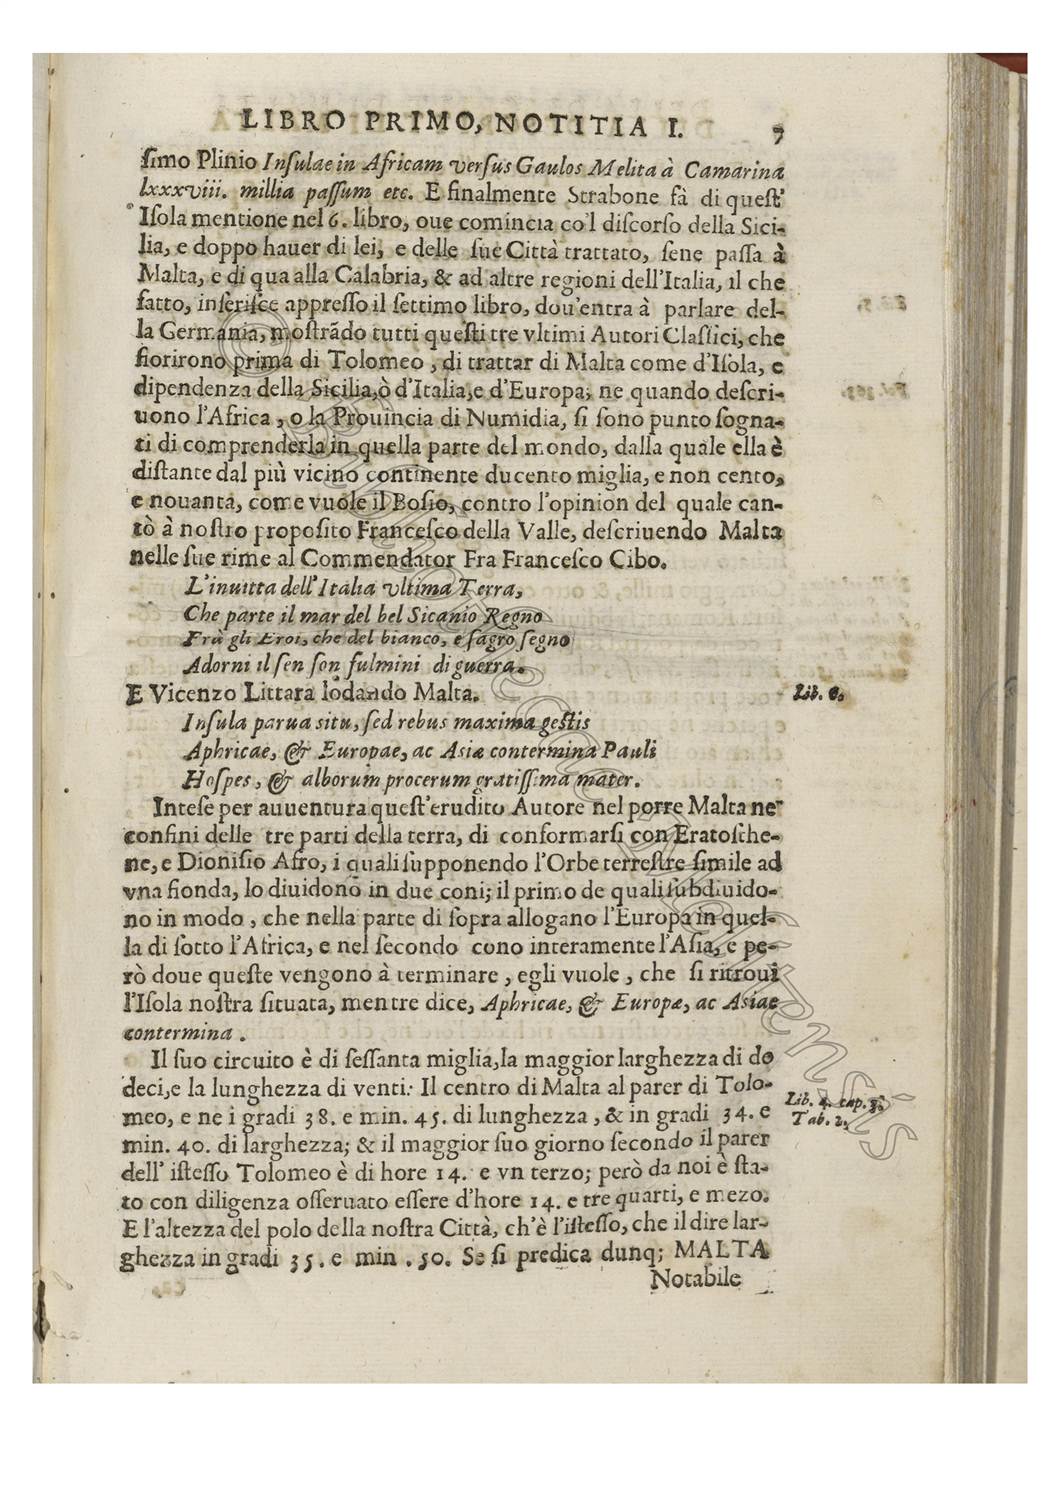 LIBRO PRIMO, NOTITIA I. 7
ſimo Plinio Inſulae in Africam verſus Gaulos Melita à Camarina
lxxxviii. millia paſſum etc. E finalmente Strabone fà di queſt'
Iſola mentione nel 6. libro, oue comincia co'l diſcorſo della Sici-
lia, e doppo hauer di lei, e delle ſue Città trattato, ſene paſſa à
Malta, e di qua alla Calabria, & ad altre regioni dell'Italia, il che
fatto, inſeriſce appreſſo il ſettimo libro, dou'entra à parlare del-
la Germania, moſtrãdo tutti queſti tre vltimi Autori Claſſici, che
fiorirono prima di Tolomeo, di trattar di Malta come d'Iſola, e
dipendenza della Sicilia, ò d'Italia, e d'Europa; ne quando deſcri-
uono l'Africa, o la Prouincia di Numidia, ſi ſono punto ſogna-
ti di comprenderla in quella parte del mondo, dalla quale ella è
diſtante dal più vicino continente ducento miglia, e non cento,
e nouanta, come vuole il Boſio, contro l'opinion del quale can-
tò à noſtro propoſito Franceſco della Valle, deſcriuendo Malta
nelle ſue rime al Commendator Fra Franceſco Cibo.
L'inuitta dell'Italia vltima Terra,
Che parte il mar del bel Sicanio Regno
Frà gli Eroi, che del bianco, e ſagro ſegno
Adorni il ſen ſon fulmini di guerra.
E Vicenzo Littara lodando Malta. Lib. 6.
Inſula parua situ, ſed rebus maxima geſtis
Aphricae, & Europae, ac Asiæ contermina Pauli
Hoſpes, & alborum procerum gratiſſima mater.
Inteſe per auuentura queſt'erudito Autore nel porre Malta ne'
confini delle tre parti della terra, di conformarſi con Eratoſthe-
ne, e Dioniſio Afro, i quali ſupponendo l'Orbe terreſtre ſimile ad
vna fionda, lo diuidono in due coni; il primo de quali ſubdiuido-
no in modo, che nella parte di ſopra allogano l'Europa in quel-
la di ſotto l'Africa, e nel ſecondo cono interamente l'Aſia, e pe-
rò doue queſte vengono à terminare, egli vuole, che ſi ritroui
l'Iſola noſtra ſituata, mentre dice, Aphricae, & Europæ, ac Asiae
contermina.
Il ſuo circuito è di ſeſſanta miglia, la maggior larghezza di do
deci, e la lunghezza di venti: Il centro di Malta al parer di Tolo-
meo, e ne i gradi 38. e min. 45. di lunghezza, & in gradi 34. e Lib. 4. cap. 3.
min. 40. di larghezza; & il maggior ſuo giorno ſecondo il parer Tab. 2.
dell' iſteſſo Tolomeo è di hore 14. e vn terzo; però da noi è ſta-
to con diligenza oſſeruato eſſere d'hore 14. e tre quarti, e mezo.
E l'altezza del polo della noſtra Città, ch'è l'iſteſſo, che il dire lar-
ghezza in gradi 35. e min. 50. Se ſi predica dunq; MALTA
Notabile
© Bibliotheca Melitensis